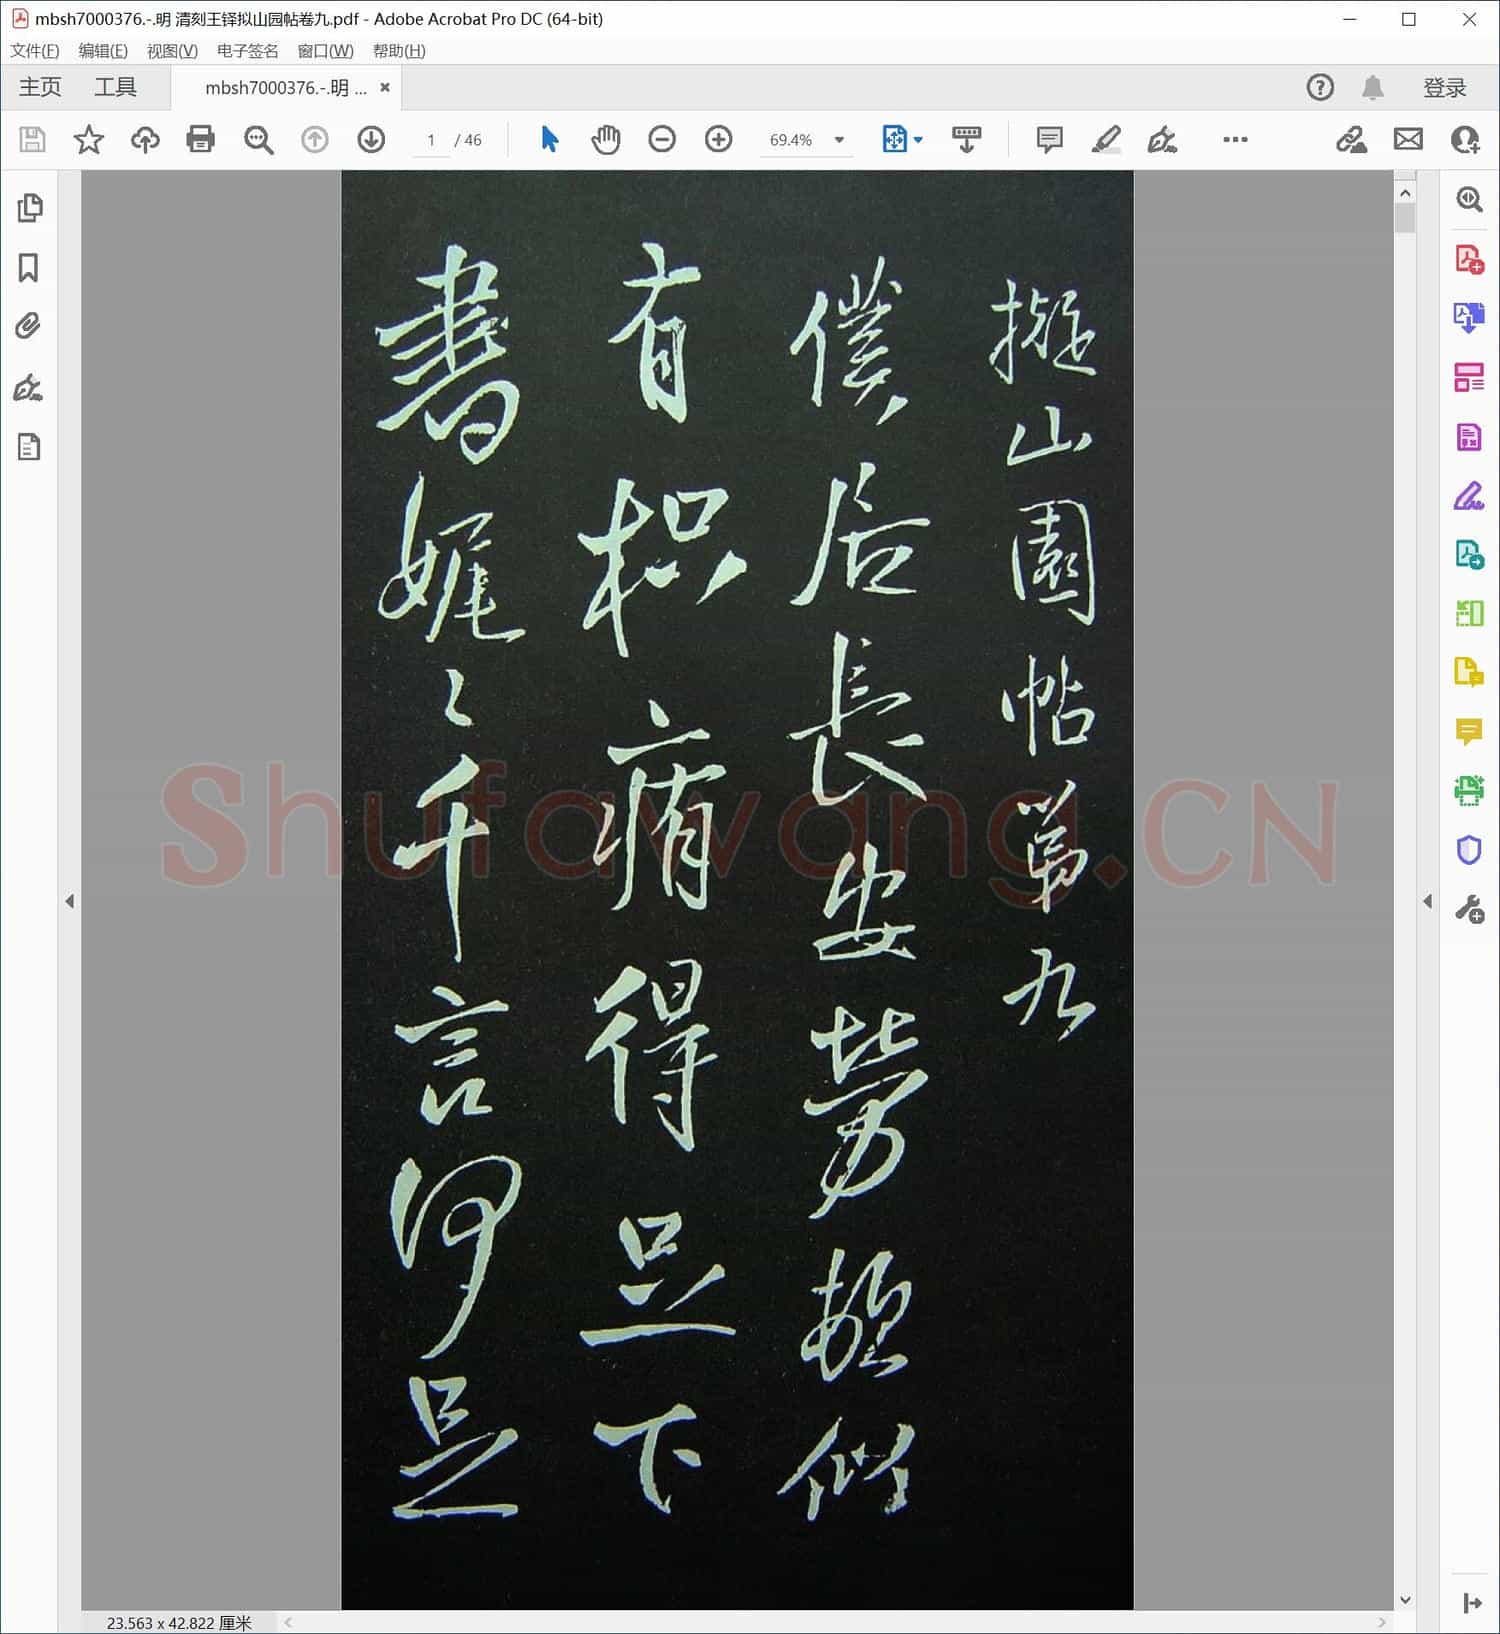 mbsh7000376.-.明 清刻王铎拟山园帖卷九.pdf - Adobe Acrobat Pro DC (64-bit)
文件(F) 编辑(E) 视图(V) 电子签名 窗口(W) 帮助(H)
主页 工具 mbsh7000376.-.明 ... 登录
1 / 46 69.4%
擬山園帖第九
僕后長安勞似
有枳痏得足下
書娓〻千言何足
Shufawang.CN
23.563 x 42.822 厘米